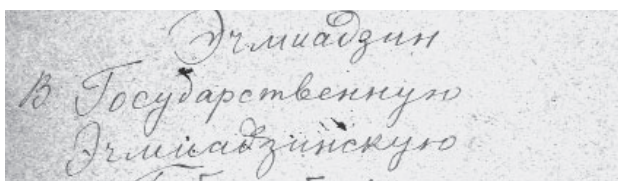 Эчмиадзин
В Государственную
Эчмиадзинскую